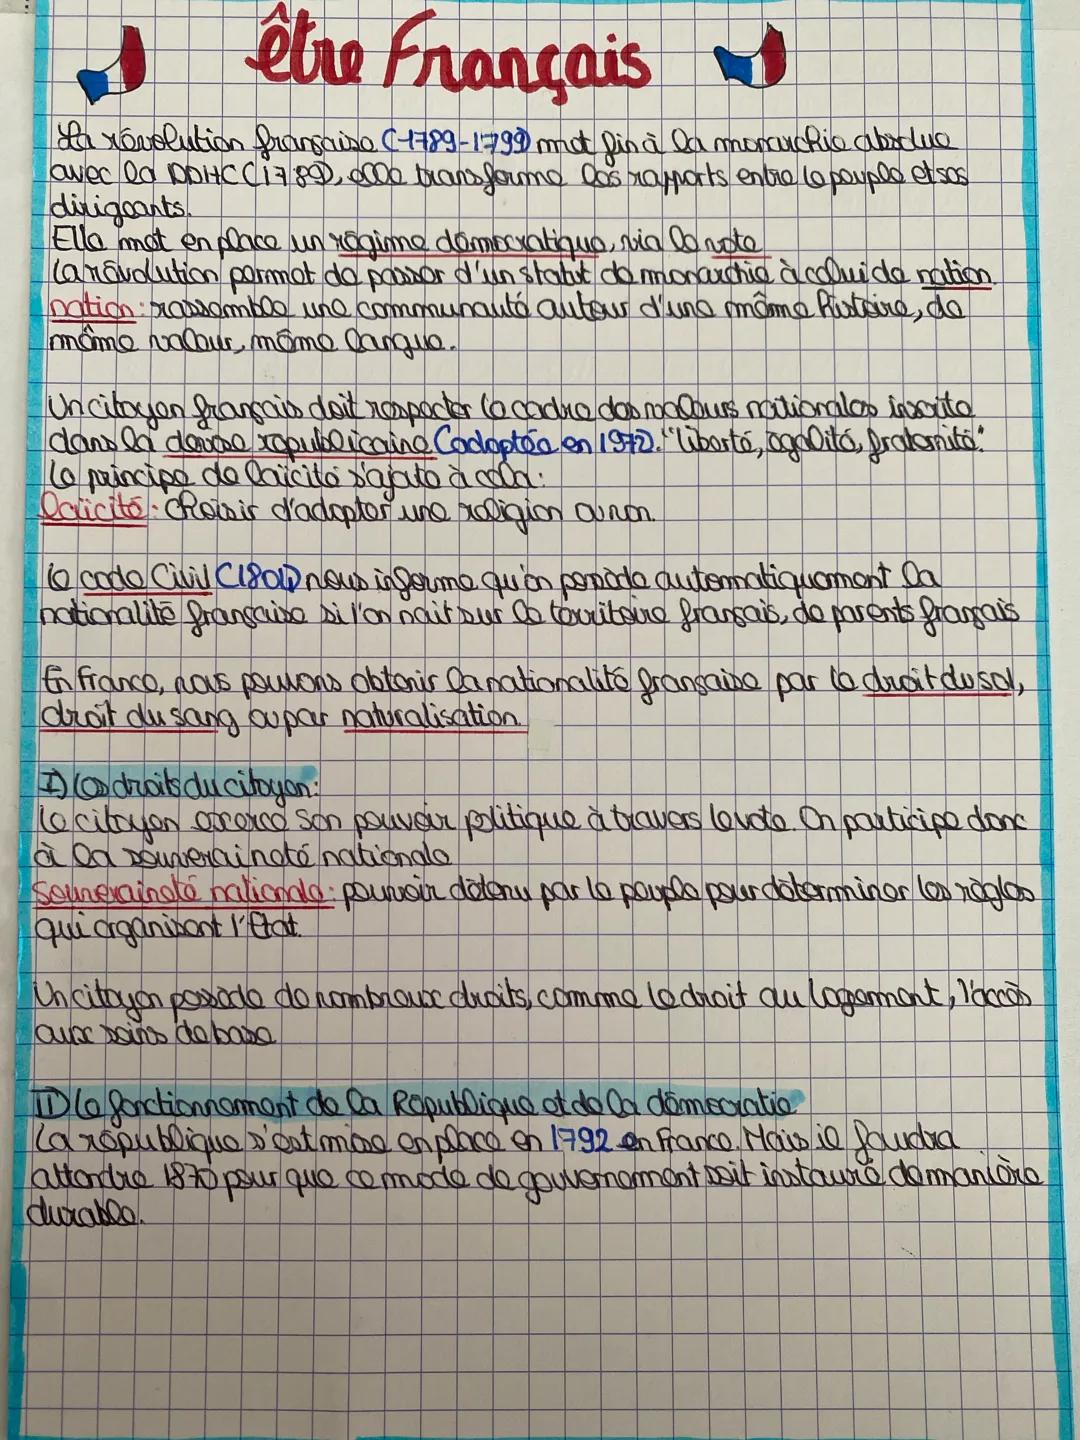 être Français
La révolution française (-1789-1799) met fin à la monarchie absolue
avec la DDHC (1789), elle transforme les rapports entre le peuple et ses
dirigeants.
Elle met en place un régime démocratique, via le vote
La révolution permet de passer d'un statut de monarchie à celui de nation.
nation : rassemble une communauté autour d'une même histoire, de
même valeur, même langue.
Un citoyen français doit respecter le cadre des valeurs nationales inscrite
dans la devise républicaine (adoptée en 1972. "liberté, égalité, fraternité".
Le principe de laïcité s'ajoute à cela :
Laïcité : choisir d'adopter une religion ou non.
Le code Civil nous informe qu'on possède automatiquement la
nationalité française si l'on nait sur le territoire français, de parents français
En France, nous pouvons obtenir la nationalité française par le droit du sol,
droit du sang ou par naturalisation.
I) Les droits du citoyen :
Le citoyen exerce son pouvoir politique à travers le vote. On participe donc
à la souveraineté nationale
Souveraineté nationale : pouvoir détenu par le peuple pour déterminer les règles
qui organisent l'État.
Un citoyen possède de nombreux droits, comme le droit au logement, l'accès
aux soins de base
II) Le fonctionnement de la République et de la démocratie
La république s'est mise en place en 1792 en France. Mais il faudra
attendre 1870 pour que ce mode de gouvernement soit instauré de manière
durable.